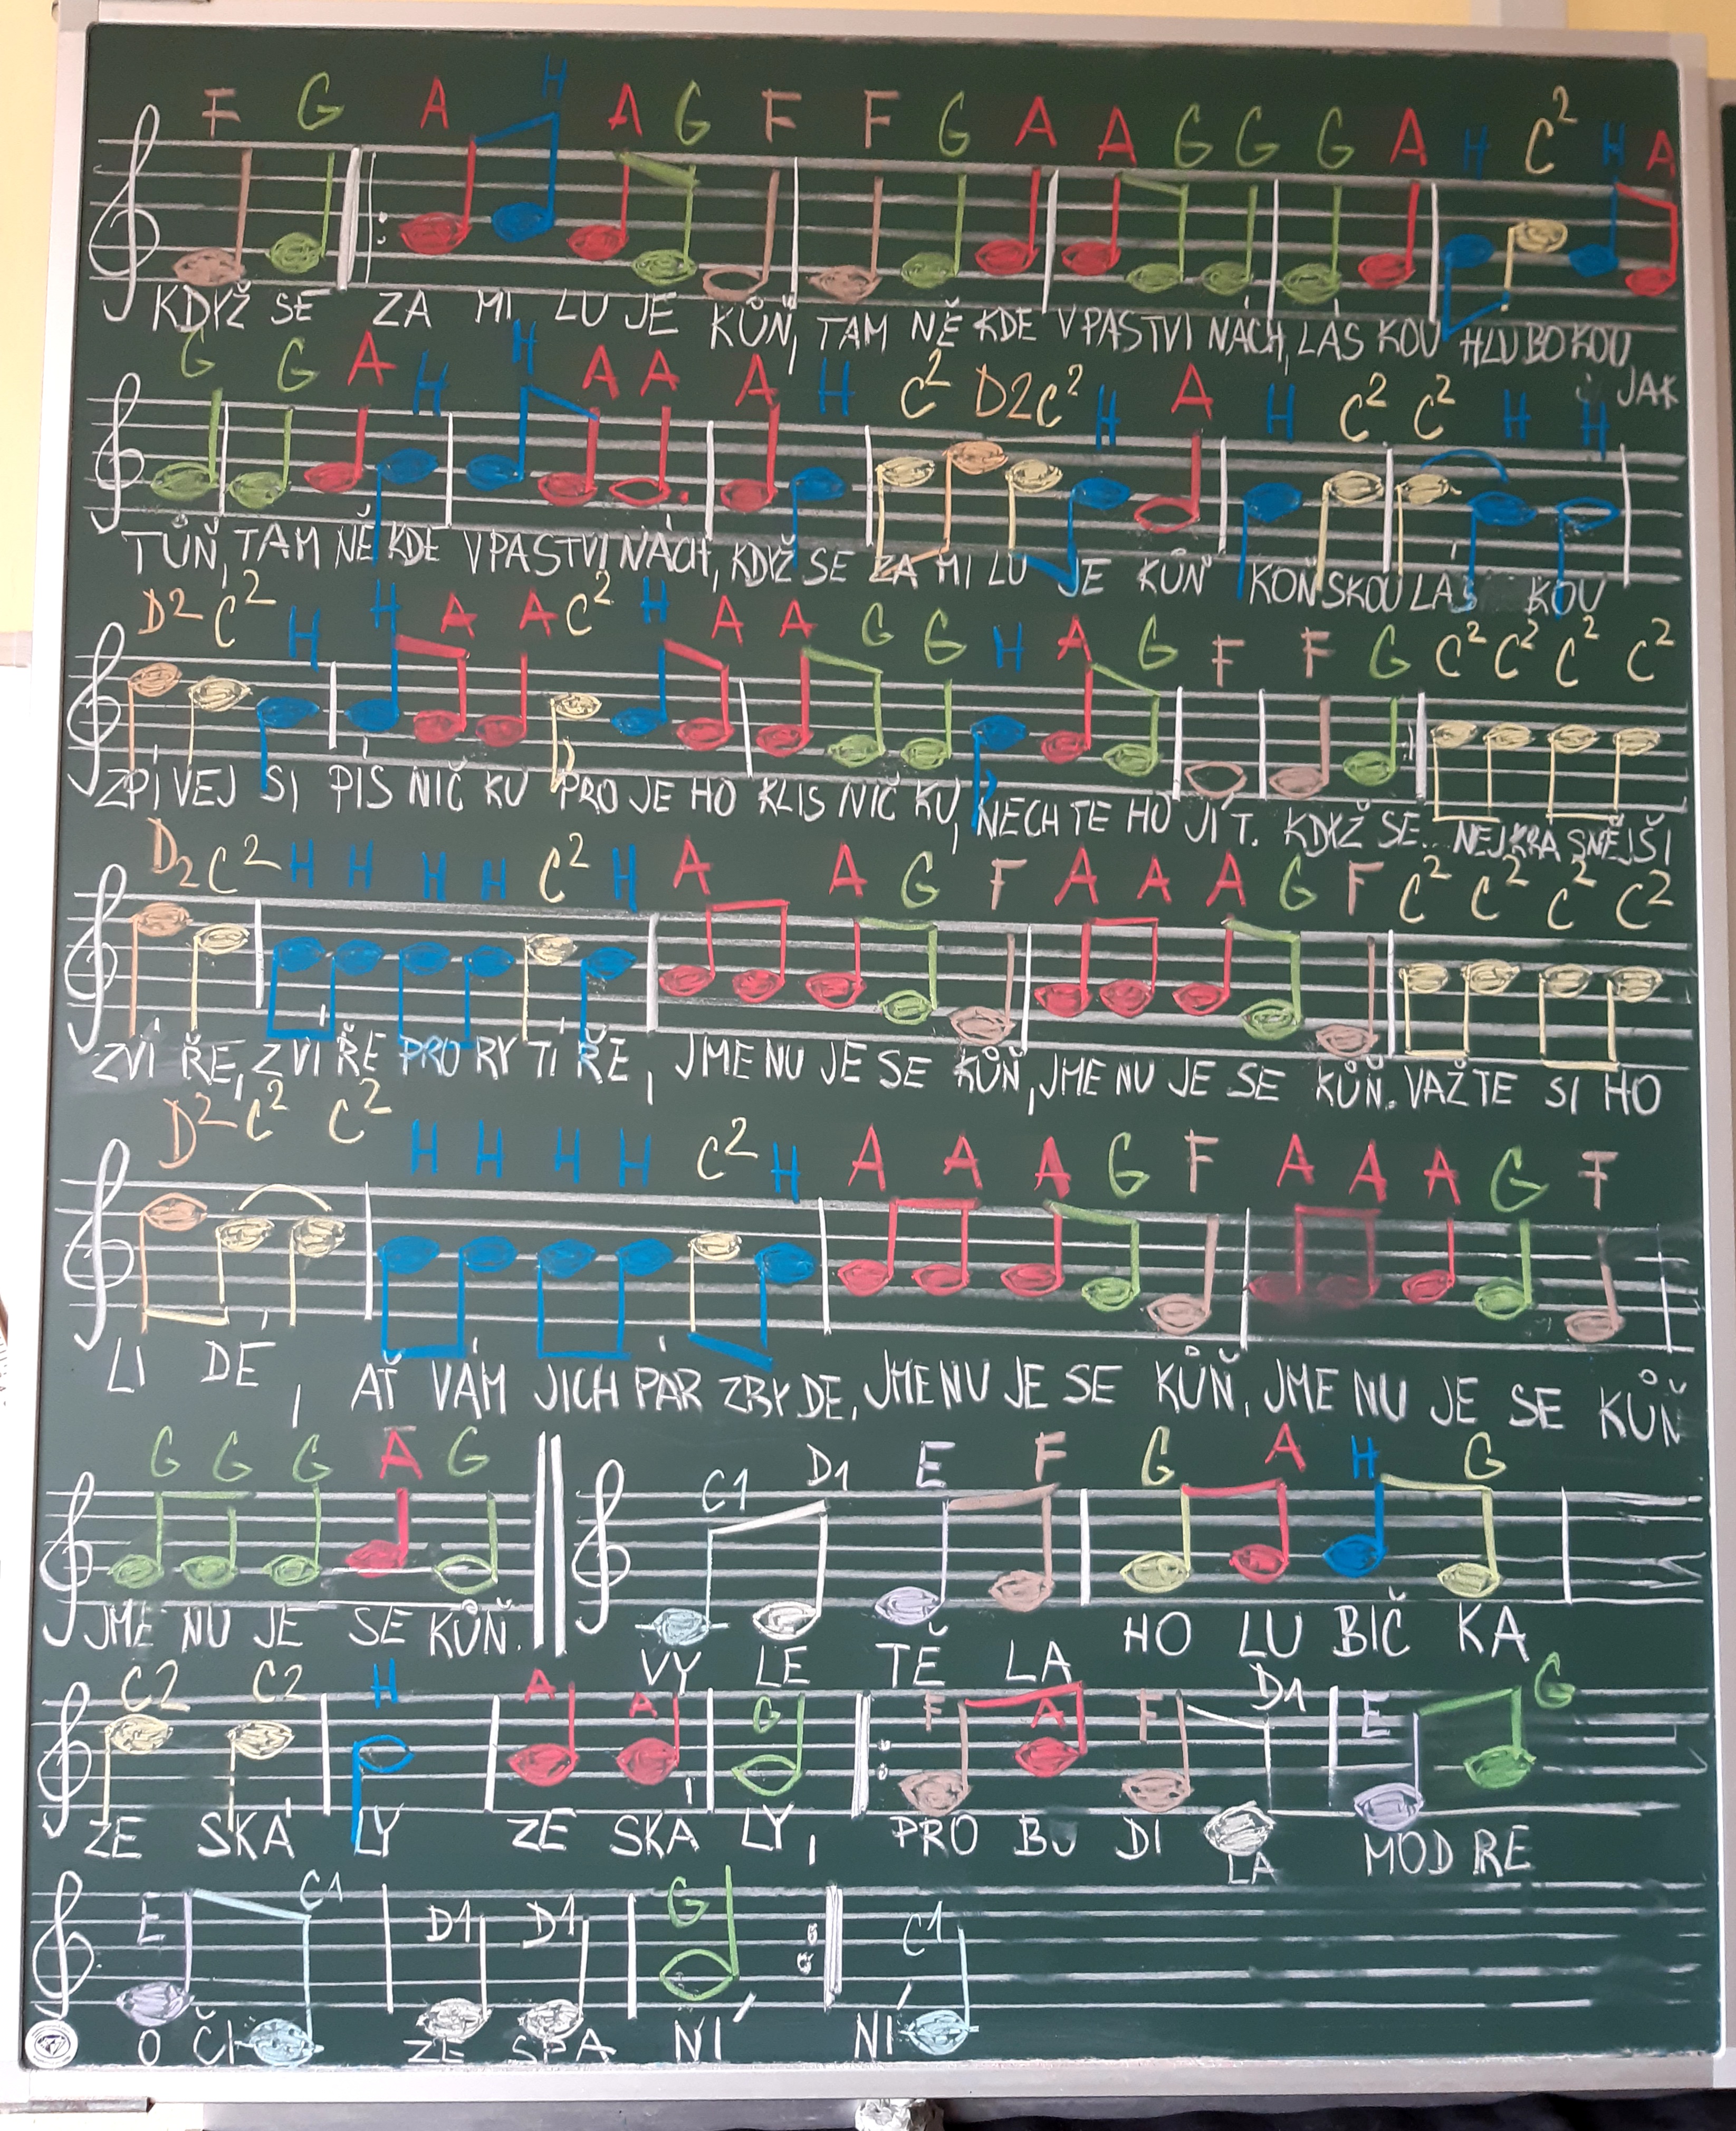 F G A H A G F F G A A G G G A H C² H A
KDYŽ SE ZA MI LU JE KŮŇ, TAM NĚ KDE V PASTVI NÁCH, LÁS KOU HLU BO KOU,
JAK
G G A H H A A A H C² D2 C² H A H C² C² H H
TŮŇ, TAM NĚ KDE V PASTVI NÁCH, KDYŽ SE ZA MI LU JE KŮŇ KOŇ SKOU LÁS KOU
D2 C² H H A A C² H A A G G H A G F F G C² C² C² C²
ZPÍ VEJ SI PÍS NIČ KU PRO JE HO KLIS NIČ KU, NECH TE HO JÍT. KDYŽ SE... NEJ KRÁ SNĚJ ŠÍ
D2 C² H H H H C² H A A G F A A A G F C² C² C² C²
ZVÍ ŘE, ZVÍ ŘE PRO RY TÍ ŘE, JME NU JE SE KŮŇ, JME NU JE SE KŮŇ. VAŽ TE SI HO
D² C² C² H H H H C² H A A A G F A A A G F
LI DÉ, AŤ VÁM JICH PÁR ZBY DE, JME NU JE SE KŮŇ, JME NU JE SE KŮŇ
G G G A G C1 D1 E F G A H G
JME NU JE SE KŮŇ. VY LE TĚ LA HO LU BIČ KA
C2 C2 H A A G F A F D1 E G
ZE SKÁ LY ZE SKÁ LY, PRO BU DI LA MOD RÉ
E C1 D1 D1 G C1
O ČI ZE SPA NÍ NÍ